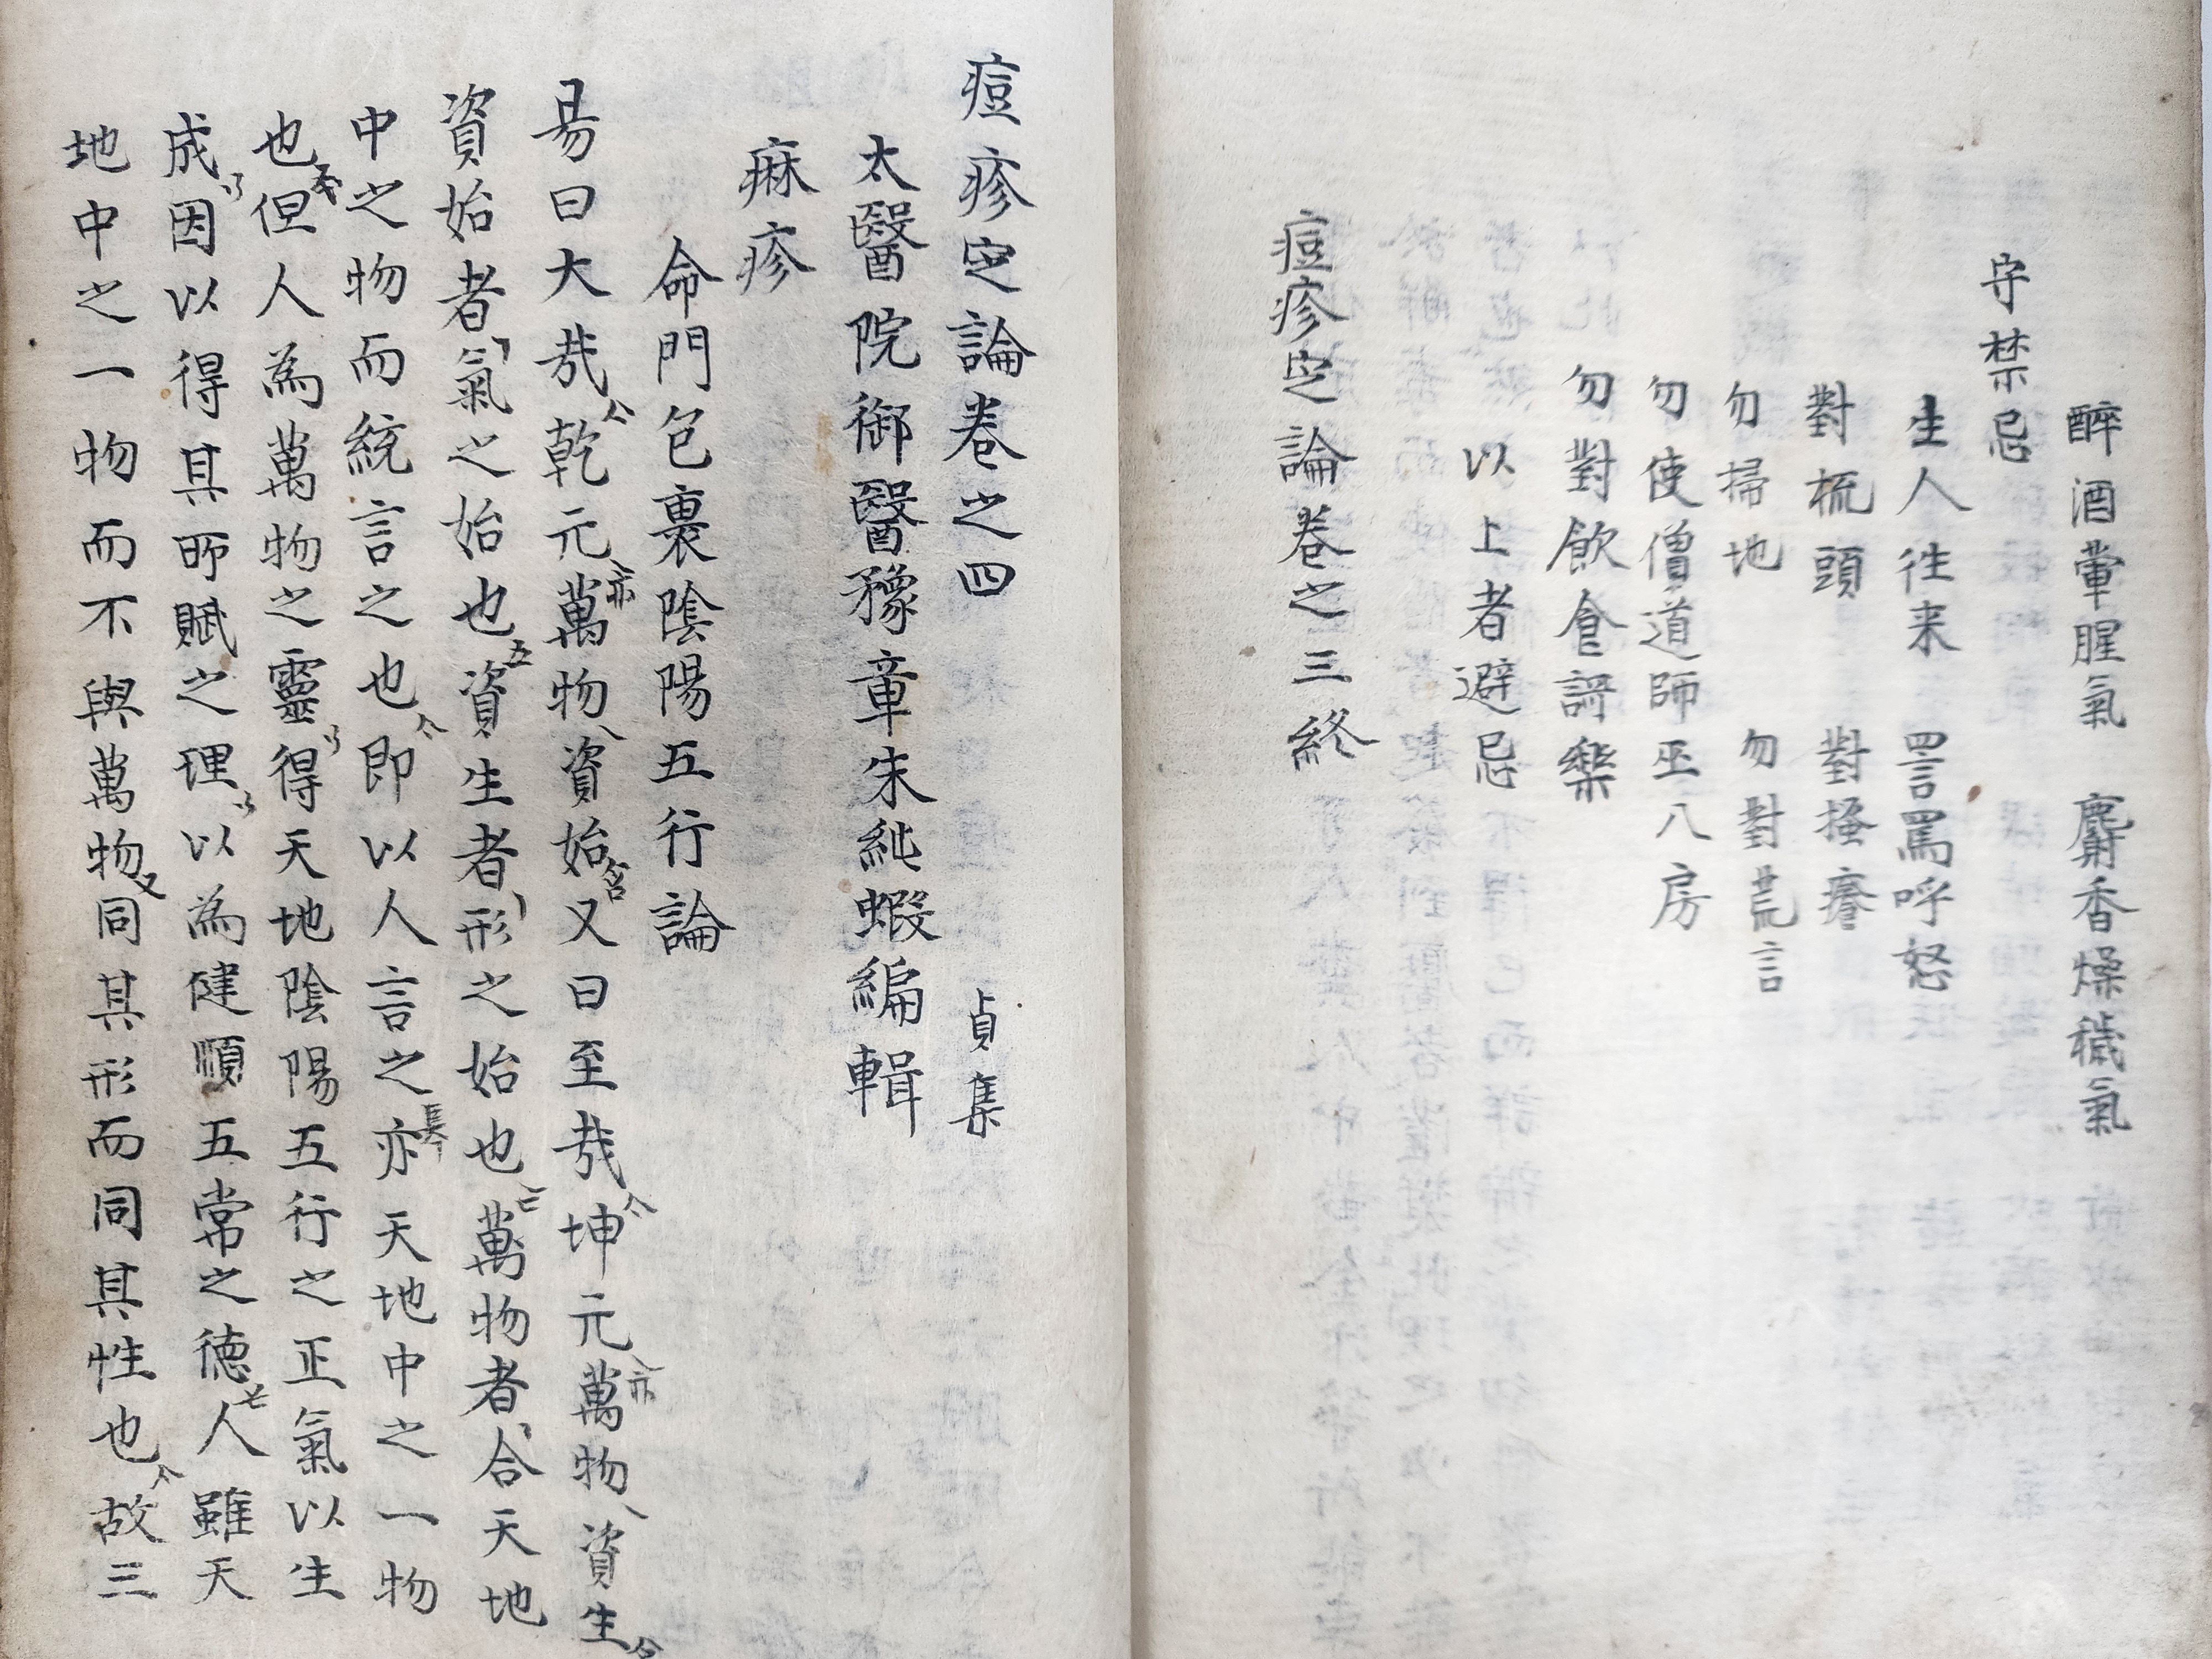 醉酒葷腥氣　麝香燥穢氣
守禁忌
生人徃来　詈罵呼怒
對梳頭　對搔癢
勿掃地　勿對荒言
勿使僧道師巫入房
勿對飲食謌樂
以上者避忌
痘疹定論卷之三終
痘疹定論卷之四　貞集
太醫院御醫豫章朱純蝦編輯
痳疹
命門包裹陰陽五行論
昜曰大㢤乾元萬物資始又曰至㢤坤元萬物資生
資始者氣之始也資生者形之始也萬物者合天地
中之物而統言之也即以人言之亦天地中之一物
也但人為萬物之靈得天地陰陽五行之正氣以生
成因以得其所賦之理以為健順五常之德人雖天
地中之一物而不與萬物同其形而同其性也故三